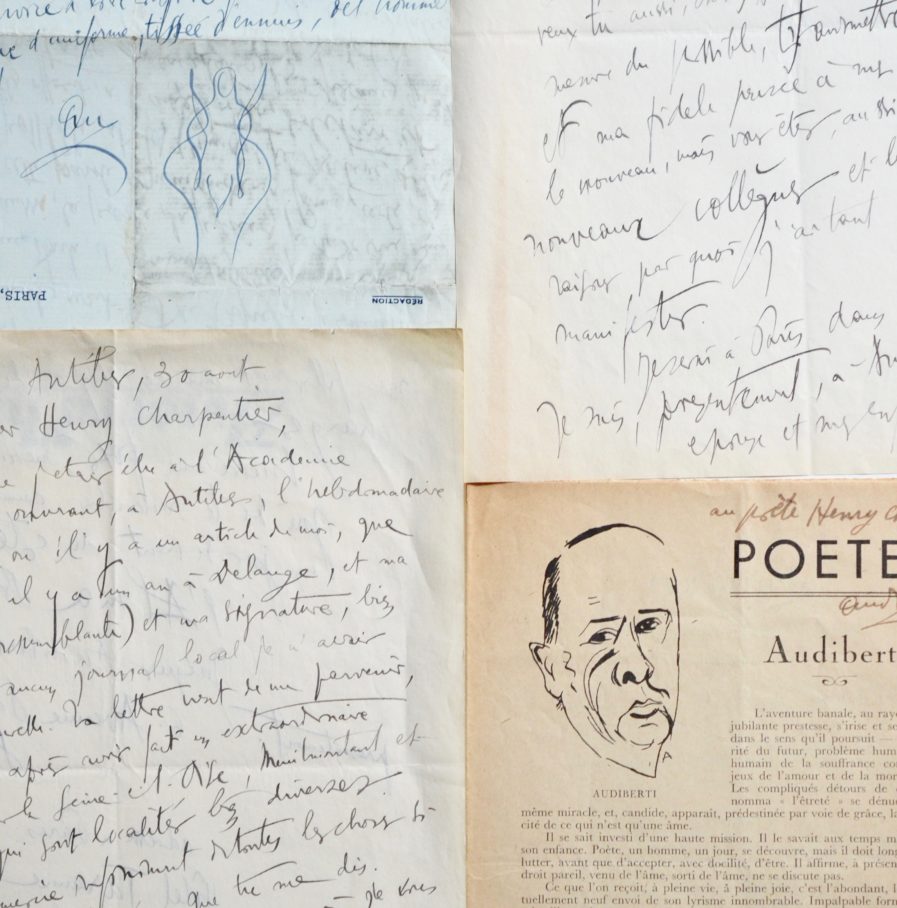 d'uniforme, tissée d'ennuis, del homme
RÉDACTION
PARIS,
veux tu aussi,
mesure du possible, transmettre
et ma fidèle pensée à mes
le nouveau, mais vous êtes, aussi
nouveaux collègues et l
raisons, par quoi j'ai tant
manifester.
Je serai à Paris dans
Je suis, présentement, à An
épouse et mes enf
Antibes, 30 août
er Henry Charpentier,
être élu à l'Académie
ouvrant, à Antibes, l'hebdomadaire
où il y a un article de moi, que
il y a un an à Delange, et ma
ressemblante) et ma signature, bien
aucun journal local je n'avais
velle. Ta lettre vient de me parvenir,
après avoir fait un extraordinaire
Seine-et-Oise, Menilmontant et
qui sont localités bien diverses.
de toutes les choses si
que tu me dis.
je vous
au poète Henry C
POETE
Audi
Audibert
L'aventure banale, au rayo
jubilante prestesse, s'irise et se
dans le sens qu'il poursuit —
rité du futur, problème hum
humain de la souffrance co
jeux de l'amour et de la mor
Les compliqués détours de
nomma « l'êtreté » se dénue
même miracle, et, candide, apparaît, prédestinée par voie de grâce, la
cité de ce qui n'est qu'une âme.
Il se sait investi d'une haute mission. Il le savait aux temps m
son enfance. Poète, un homme, un jour, se découvre, mais il doit long
lutter, avant que d'accepter, avec docilité, d'être. Il affirme, à présen
droit pareil, venu de l'âme, sorti de l'âme, ne se discute pas.
Ce que l'on reçoit, à pleine vie, à pleine joie, c'est l'abondant, l
tuellement neuf envoi de son lyrisme innombrable. Impalpable form
A
AUDIBERTI